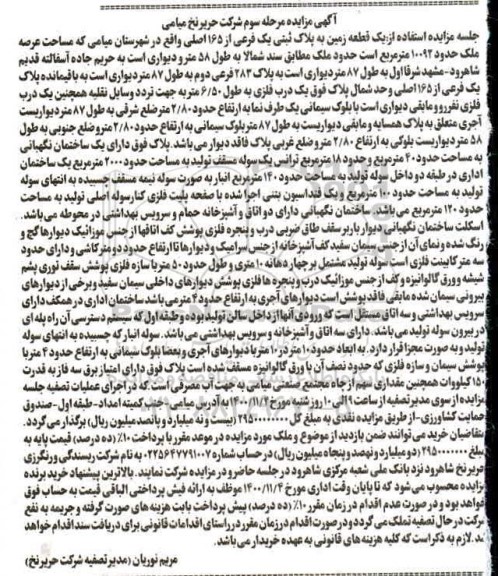 آگهی مزایده مرحله سوم شرکت حریر نخ میامی
جلسه مزایده استفاده از: یک قطعه زمین به پلاک ثبتی یک فرعی از ۱۶۵ اصلی واقع در شهرستان میامی که مساحت عرصه
ملک حدود ۱۰۰۹۲ مترمربع است حدود ملک مطابق سند شمالا به طول ۵۸ متر و دیواری است به حریم جاده آسفالته قدیم
شاهرود-مشهد شرقا اول به طول ۸۷ متر دیواری است به پلاک ۲۸۳ فرعی دوم به طول ۸۷ متر دیواری است به باقیمانده پلاک
یک فرعی از ۱۶۵ اصلی و حد شمال پلاک فوق یک درب فلزی به طول ۶/۵۰ متر به جهت تردد وسایل نقلیه همچنین یک درب
فلزی نفررو و مابقی دیواری است با بلوک سیمانی یک طرف نما به ارتفاع حدود ۲/۸۰ متر ضلع شرقی به طول ۸۷ متر دیواریست
آجری متعلق به پلاک همسایه و مابقی دیواریست به طول ۸۷ متر بلوک سیمانی به ارتفاع حدود ۲/۸۰ متر و ضلع جنوبی به طول
۵۸ متر دیواریست بلوکی به ارتفاع ۲/۸۰ متر و ضلع غربی پلاک فاقد دیوار می باشد. پلاک فوق دارای یک ساختمان نگهبانی
به مساحت حدود ۴۰ مترمربع و حدود ۱۸ مترمربع ترانس یک سوله مسقف تولید به مساحت حدود ۲۰۰۰ مترمربع یک ساختمان
اداری در طبقه دو داخل سوله تولید به مساحت حدود ۱۴۰ مترمربع انبار به صورت سوله نیمه مسقف چسبیده به انتهای سوله
تولید به مساحت حدود ۱۰۰ مترمربع و یک فنداسیون بتنی اجرا شده با صفحه پلیت فلزی کنار سوله اصلی تولید به مساحت
حدود ۱۲۰ مترمربع می باشد. ساختمان نگهبانی دارای دو اتاق و آشپزخانه حمام و سرویس بهداشتی در محوطه می باشد.
اسکلت ساختمان نگهبانی دیوار باربر سقف طاق ضربی درب و پنجره فلزی پوشش کف اتاقها از جنس موزائیک دیوارها گچ و
رنگ شده و نمای آن از جنس سیمان سفید کف آشپزخانه از جنس سرامیک و دیوارها تا ارتفاع حدود دو متر کاشی و دارای حدود
سه متر کابینت فلزی است سوله تولید مشتمل بر چهار دهانه ۱۰ متری و طول حدود ۵۰ متر با سازه فلزی پوشش سقف توری پشم
شیشه و ورق گالوانیزه و کف از جنس موزائیک درب و پنجره ها فلزی پوشش دیوارهای داخلی سیمان سفید و برخی از دیوارهای
بیرونی سیمان شده مابقی فاقد پوشش است دیوارهای آجری به ارتفاع حدود ۴ متر می باشد ساختمان اداری در همکف دارای
سرویس بهداشتی و سه اتاق مستقل است که ورودی آنها از داخل سالن تولید بوده و طبقه اول که سیستم دسترسی آن راه پله ای
در بیرون سوله تولید می باشد. دارای سه اتاق و آشپزخانه و سرویس بهداشتی می باشد. سوله انبار که چسبیده به انتهای سوله
تولید و به صورت مجزا قرار دارد. به ابعاد حدود ۱۰ متر در ۱۰ متر با دیوارهای آجری و بعضا بلوک سیمانی به ارتفاع حدود ۴ متر با
پوشش سیمان و سازه فلزی که حدود نصف آن با ورق گالوانیزه مسقف شده است پلاک فوق دارای امتیاز برق سه فاز به قدرت
۱۵۰ کیلووات همچنین مقداری سهم از چاه مجتمع صنعتی میامی به جهت آب مصرفی است که در اجرای عملیات تصفیه جلسه
مزایده از سوی مدیر تصفیه از ساعت ۹ الی ۱۰ روز شنبه مورخ ۱۴۰۰/۱۱/۲ به آدرس میامی-جنب کمیته امداد-طبقه اول-صندوق
حمایت کشاورزی-از طریق مزایده نقدی به مبلغ کل ۲۹۵۰۰۰۰۰۰۰۰ (بیست و نه میلیارد و پانصد میلیون ریال) برگزار می گردد.
متقاضیان خرید می توانند ضمن بازدید از موضوع و ملک مورد مزایده در موعد مقرر با پرداخت ۱۰% (ده درصد) قیمت پایه به
مبلغ ۲۹۵۰۰۰۰۰۰۰ (دو میلیارد و نهصد و پنجاه میلیون ریال) در حساب شماره ۰۲۲۵۶۴۷۷۹۱۰۰۷ به نام شرکت ریسندگی و رنگرزی
حریر نخ شاهرود نزد بانک ملی شعبه مرکزی شاهرود در جلسه حاضر و در مزایده شرکت نمایند. بالاترین پیشنهاد خرید برنده
مزایده محسوب می شود که تا پایان وقت اداری مورخ ۱۴۰۰/۱۱/۴ موظف به ارائه فیش پرداختی الباقی قیمت به حساب فوق
خواهد بود و در صورت عدم اقدام در زمان مقرر ۱۰% (ده درصد) پیش پرداخت بابت هزینه های صورت گرفته و جریمه به نفع
شرکت در حال تصفیه تملک می گردد و در صورت اقدام در زمان مقرر در راستای اقدامات قانونی برای دریافت سند اقدام خواهد
شد. لازم به ذکر است که کلیه هزینه های قانونی به عهده خریدار می باشد.
مریم نوریان (مدیر تصفیه شرکت حریر نخ)